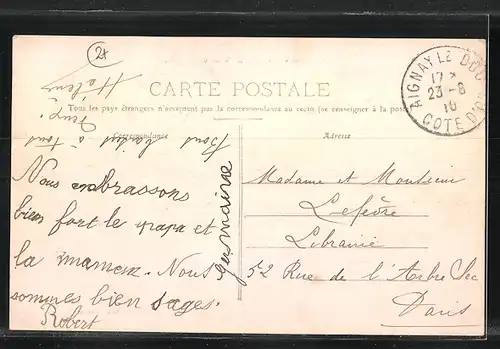 2x
CARTE POSTALE
Tous les pays étrangers n'acceptent pas la correspondance au recto (se renseigner à la poste)
Correspondance
Adresse
AIGNAY LE DUC
17 *
23-8
10
COTE D'OR
Madame et Monsieur
Lefèvre
Librairie
52 Rue de l'Arbre Sec
Paris
Nous embrassons
bien fort le papa et
la maman. Nous
sommes bien sages.
Robert
germaine
à tout
Hélène